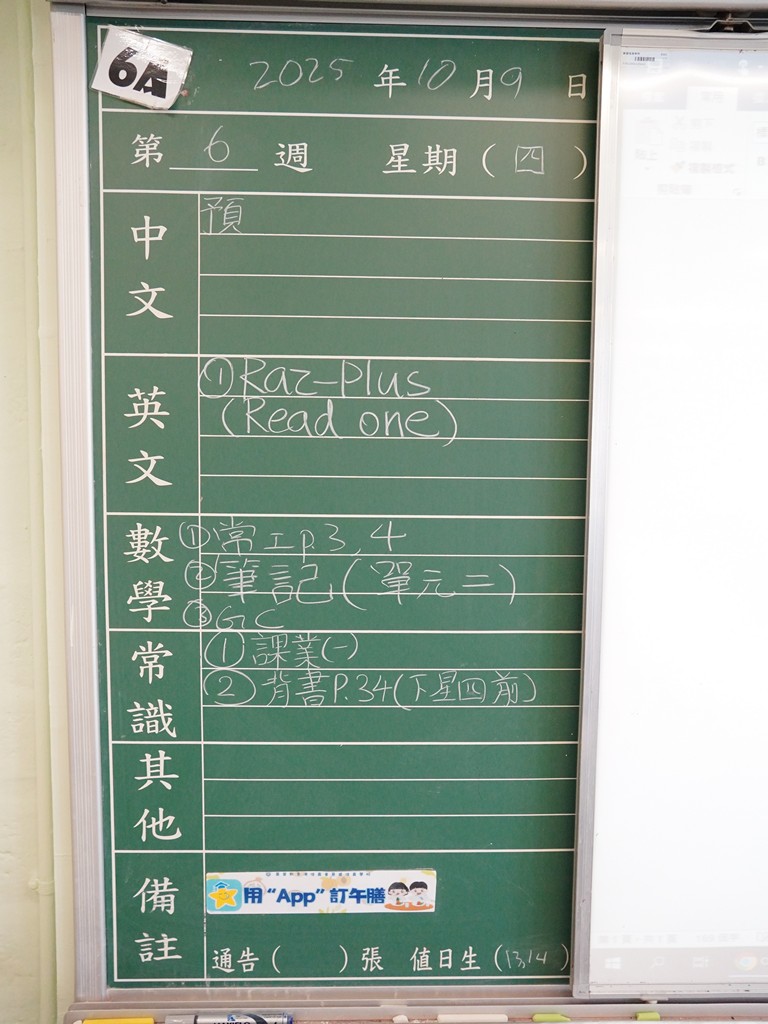 6A
2025 年 10 月 9 日
第 6 週 星期 ( 四 )
中文
預
英文
① Raz-Plus
(Read one)
數學
① 常工p.3, 4
② 筆記(單元二)
③ GC
常識
① 課業(一)
② 背書P.34(下星四前)
其他
備註
用“App”訂午膳
通告 ( ) 張 值日生 (13,14)